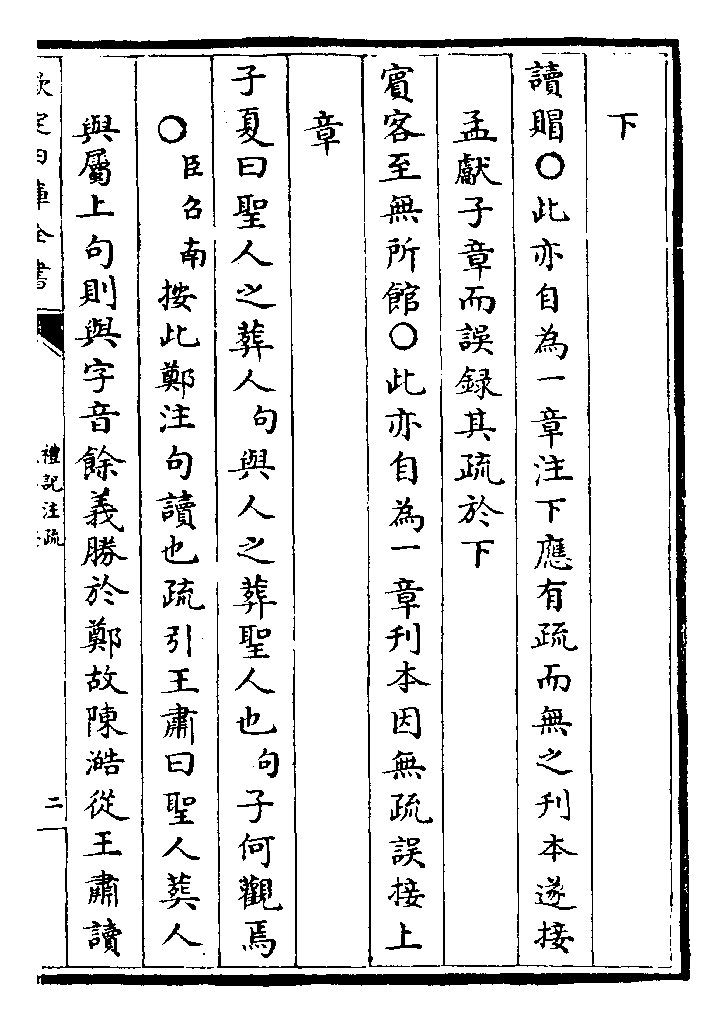 下
讀賵○此亦自為一章注下應有疏而無之刋本遂接
孟獻子章而誤録其疏於下
賓客至無所館○此亦自為一章刋本因無疏誤接上
章
子夏曰聖人之葬人句與人之葬聖人也句子何觀焉
○臣召南按此鄭注句讀也疏引王肅曰聖人葬人
與屬上句則與字音餘義勝於鄭故陳澔從王肅讀
欽定四庫全書
禮記注疏
二